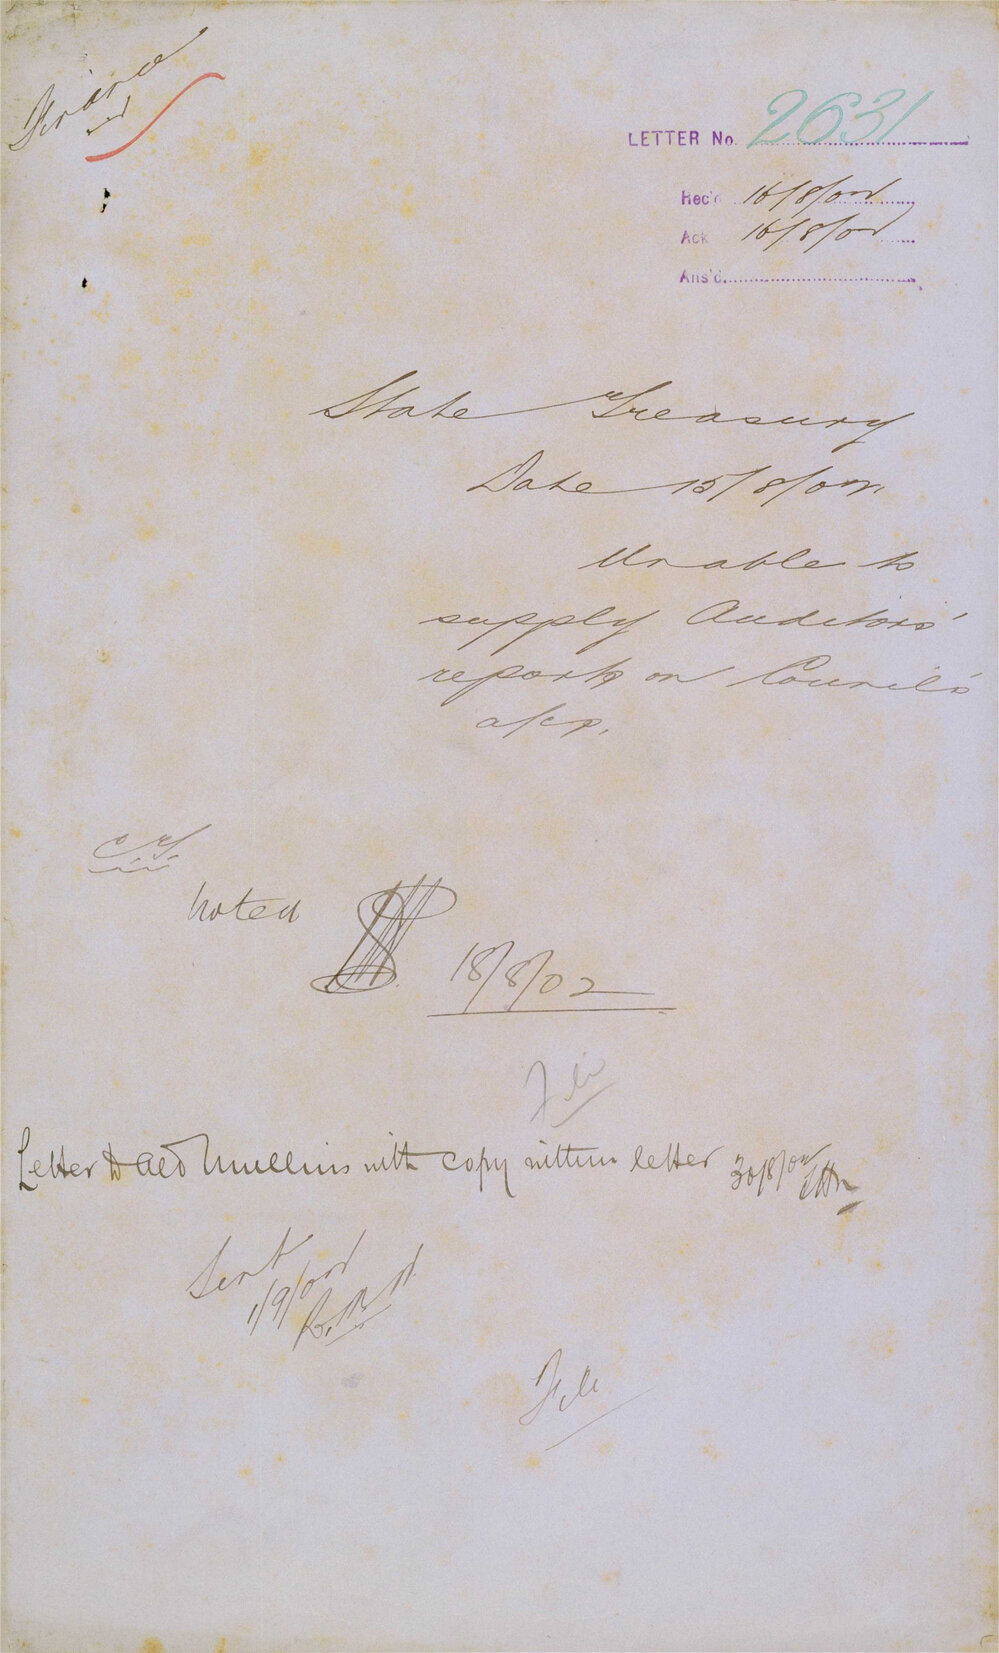 Finance
LETTER No. 2631
Rec'd 16/8/02
Ack 16/8/02
Ans'd
State Treasury
Date 15/8/02.
Unable to
supply Auditors'
reports on Council's
a/cs.
Noted
18/8/02
File
Letter to Ald Mullins with copy within letter 30/8/02
Sent
1/9/02
File